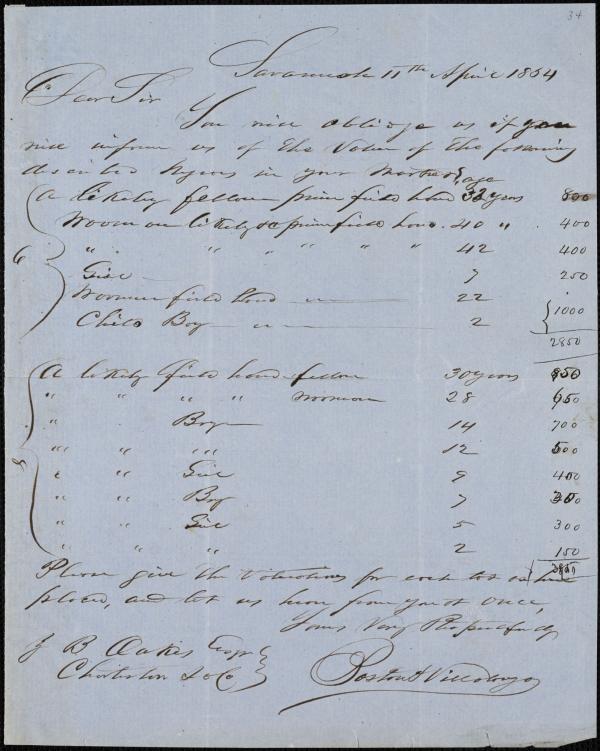 34
Savannah 11th April 1854
Dear Sir
You will oblidge us if you
will inform us of the Value of the following
discribed Negroes in your Market,
age
A likely fellow prime field hand 32 years 800
Woman likely & prime field hand 40 " 400
" " " " " " 42 400
6 Girl 7 250
Woman field hand 22
Child Boy 2 } 1000
2850
A likely field hand fellow 30 years 850
" " " " woman 28 650
" Boy 14 700
" " " 12 500
8 " " Girl 9 400
" " Boy 7
" " Girl 5 300
" " " 2 150
Please give the Valuations for each lot as here
placed, and let us hear from you at once,
Yours Very Respectfully
J B Oakes Esqr
Charleston So Ca
Boston & Villalonga